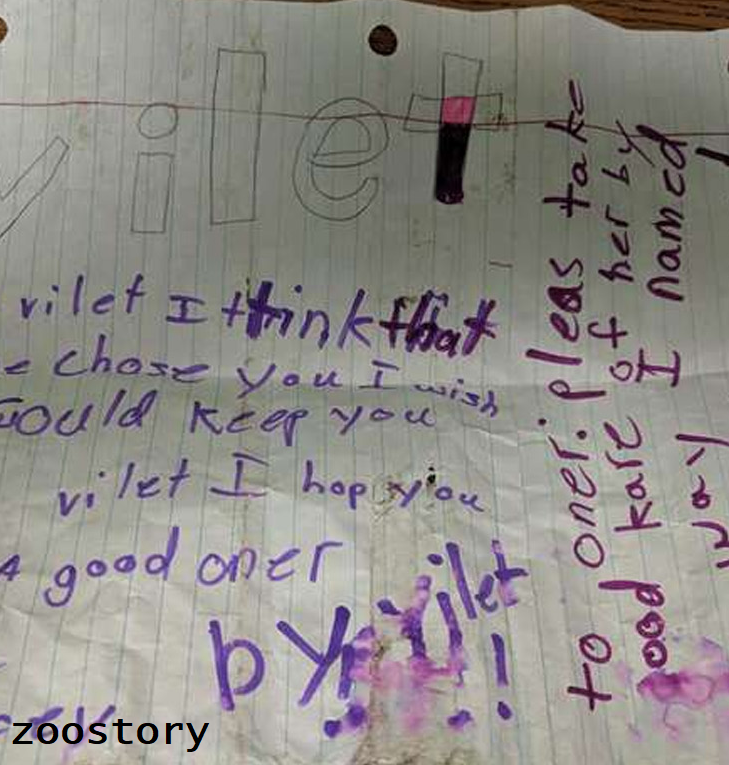 vilet
vilet I think that
e chose you I wish
could keep you
vilet I hop you
A good oner
by vilet!
to oner: pleas take
ood kare of her by
I named
way
zoostory